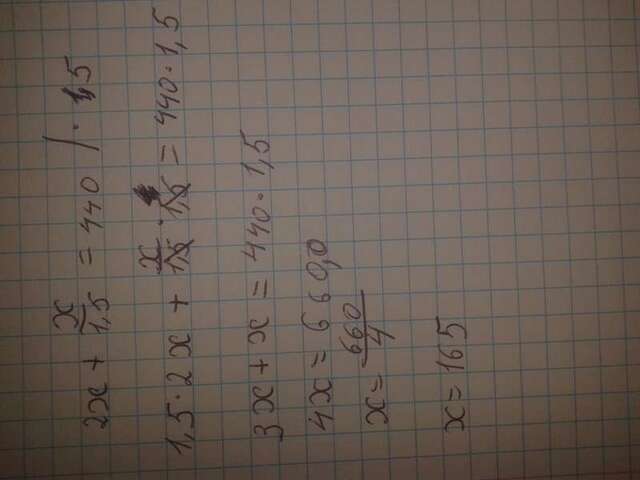 2x + x/1,5 = 440 /· 1,5
1,5 · 2x + x/1,5 · 1,5 = 440 · 1,5
3x + x = 440 · 1,5
4x = 660,0
x = 660/4
x = 165